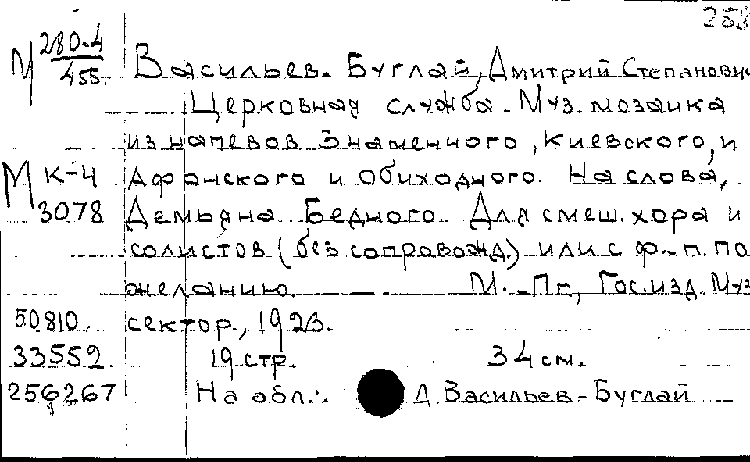 258
М 280-4/455 Васильев-Буглай, Дмитрий Степанович
Церковная служба. Муз. мозаика
из напевов Знаменного, Киевского, и
М К-4 Афонского и Обиходного. На слова,
3078 Демьяна Бедного. Для смеш. хора и
солистов (без сопровожд.) или с ф.-п. по
желанию. М.-Пг., Гос. изд. Муз
50810 сектор., 1923.
33552 19 стр. 34 см.
256267 На обл.: Д. Васильев-Буглай